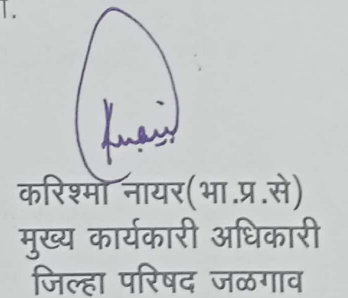 करिश्मा नायर(भा.प्र.से)
मुख्य कार्यकारी अधिकारी
जिल्हा परिषद जळगाव